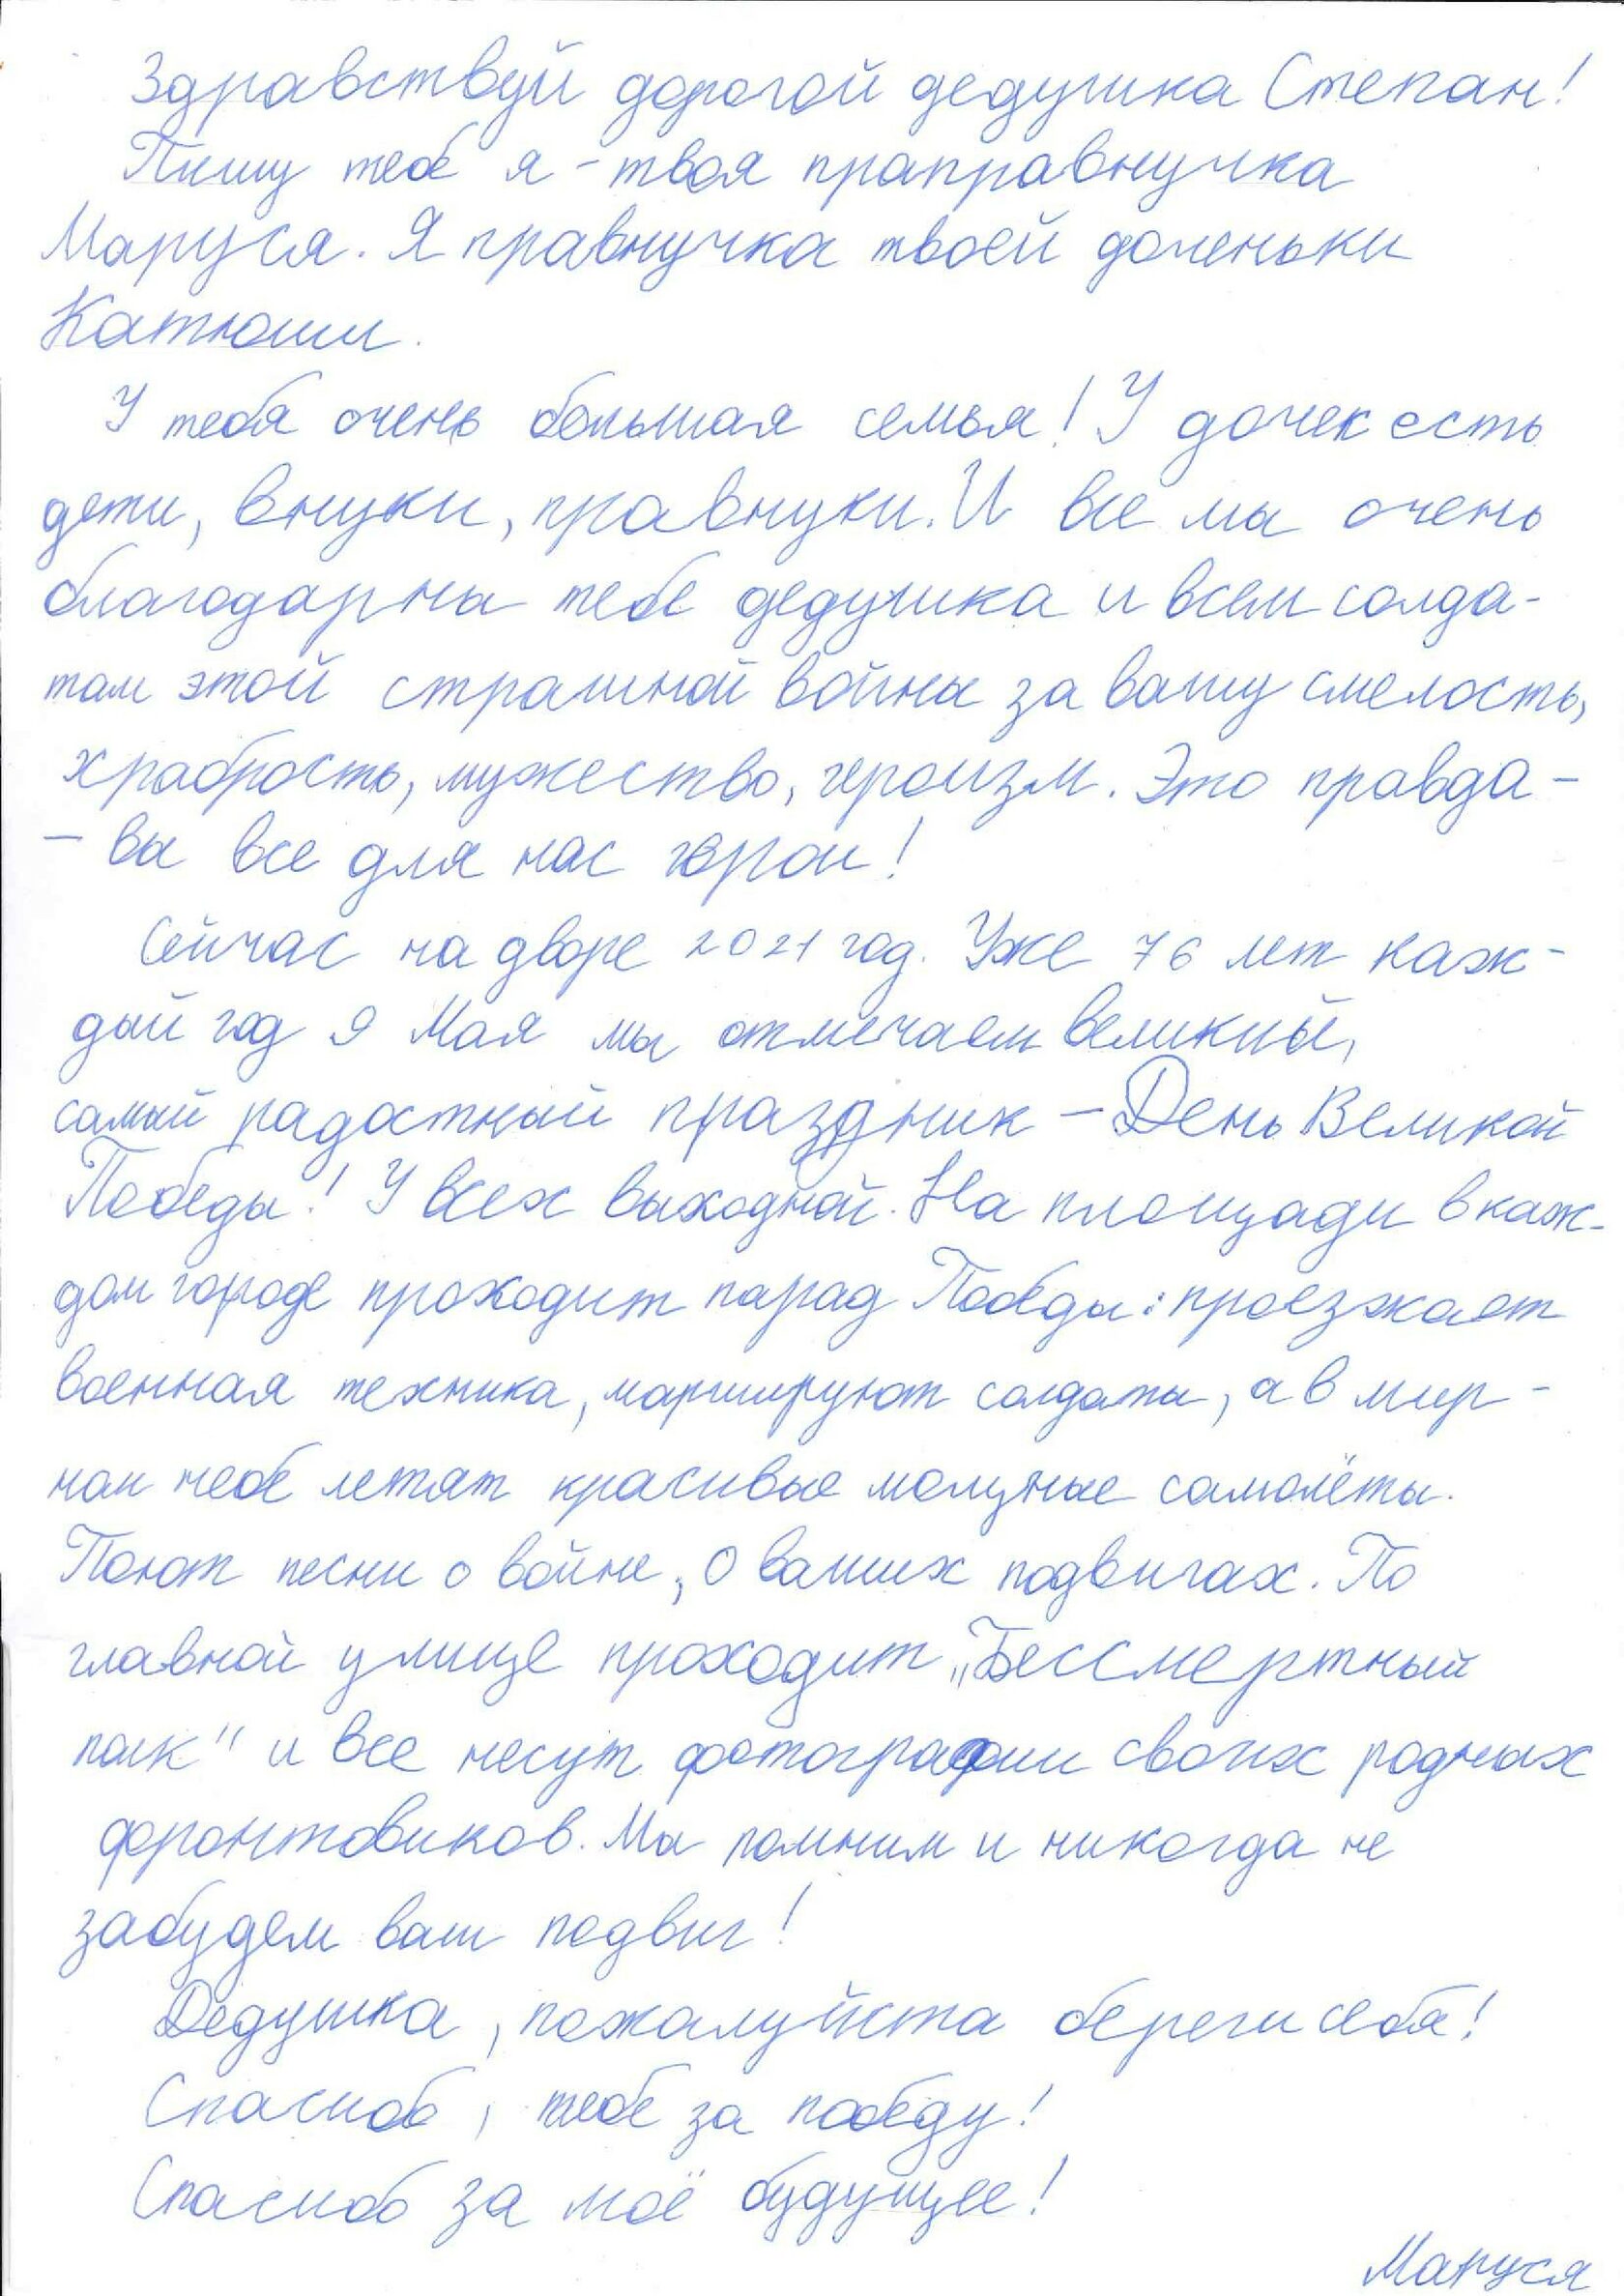 Здравствуй дорогой дедушка Степан!
Пишу тебе я - твоя праправнучка
Маруся. Я правнучка твоей доченьки
Катюши.
У тебя очень большая семья! У дочек есть
дети, внуки, правнуки. И все мы очень
благодарны тебе дедушка и всем солда-
там этой страшной войны за вашу смелость,
храбрость, мужество, героизм. Это правда -
- вы все для нас герои!
Сейчас на дворе 2021 год. Уже 76 лет каж-
дый год 9 Мая мы отмечаем великий,
самый радостный праздник - День Великой
Победы! У всех выходной. На площади в каж-
дом городе проходит парад Победы: проезжает
военная техника, маршируют солдаты, а в мир-
ном небе летят красивые мощные самолёты.
Поют песни о войне, о ваших подвигах. По
главной улице проходит „Бессмертный
полк" и все несут фотографии своих родных
фронтовиков. Мы помним и никогда не
забудем ваш подвиг!
Дедушка, пожалуйста береги себя!
Спасибо, тебе за победу!
Спасибо за моё будущее!
Маруся